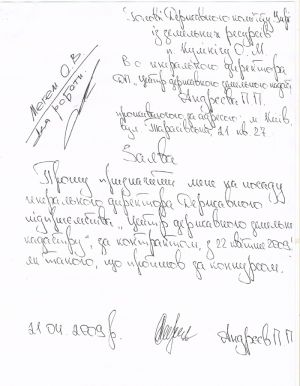 Голові Державного комітету
із земельних ресурсів
п. Кулініча О. М
В о генерального директора
ДП „Центр державного земельного
Андреєва П П.
проживаючого за адресою: м Київ,
вул 21 кв 27
О. В
для роботи
Заява
Прошу призначити мене на посаду
генерального директора Державного
підприємства „Центр державного земельного
кадастру", за контрактом, з 22 квітня 2009
як такого, що пройшов за конкурсом.
21 04. 2009 р. Андреєв П П